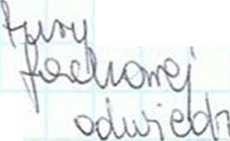 tury
fachowej
odwiedz